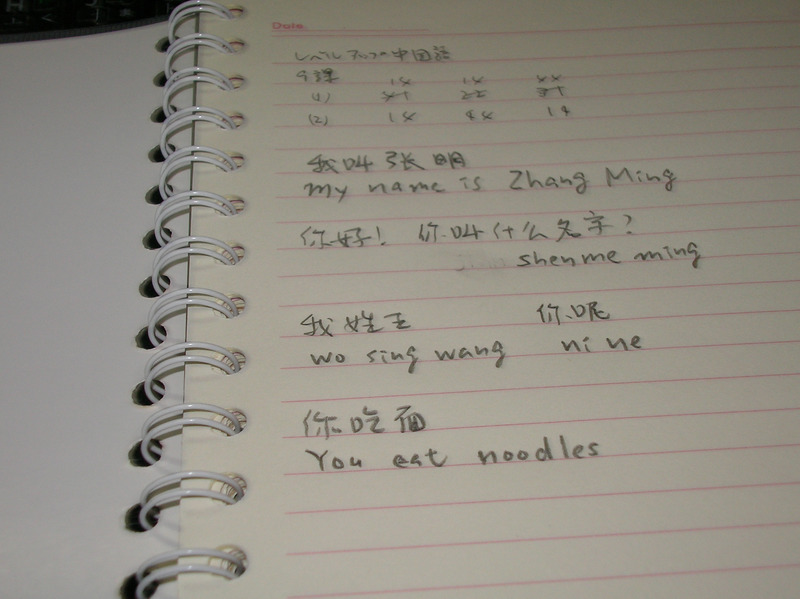 Date
レベルアップ中国語
9課 14 14 44
(1) 41 22 31
(2) 14 44 14
我叫张明
my name is Zhang Ming
你好! 你叫什么名字?
shenme ming
我姓王 你呢
wo sing wang ni ne
你吃面
You eat noodles